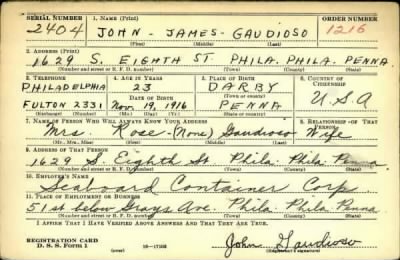 SERIAL NUMBER 1. NAME (Print) ORDER NUMBER
2404 JOHN - JAMES - GAUDIOSO 1216
(First) (Middle) (Last)
2. ADDRESS (Print)
1629 S. EIGHTH ST. PHILA. PHILA. PENNA
(Number and street or R. F. D. number) (Town) (County) (State)
3. TELEPHONE 4. AGE IN YEARS 5. PLACE OF BIRTH 6. COUNTRY OF CITIZENSHIP
PHILADELPHIA 23 DARBY
DATE OF BIRTH (Town or county)
FULTON 2331 Nov. 19, 1916 PENNA U.S.A
(Exchange) (Number) (Mo.) (Day) (Yr.) (State or country)
7. NAME OF PERSON WHO WILL ALWAYS KNOW YOUR ADDRESS 8. RELATIONSHIP OF THAT PERSON
Mrs. Rose (None) Gaudioso Wife
(Mr., Mrs., Miss) (First) (Middle) (Last)
9. ADDRESS OF THAT PERSON
1629 S. Eighth St Phila. Phila. Penna
(Number and street or R. F. D. number) (Town) (County) (State)
10. EMPLOYER'S NAME
Seaboard Container Corp
11. PLACE OF EMPLOYMENT OR BUSINESS
51st below Grays Ave. Phila. Phila. Penna
(Number and street or R. F. D. number) (Town) (County) (State)
I AFFIRM THAT I HAVE VERIFIED ABOVE ANSWERS AND THAT THEY ARE TRUE.
REGISTRATION CARD
D. S. S. Form 1 John Gaudioso
(Registrant's signature)